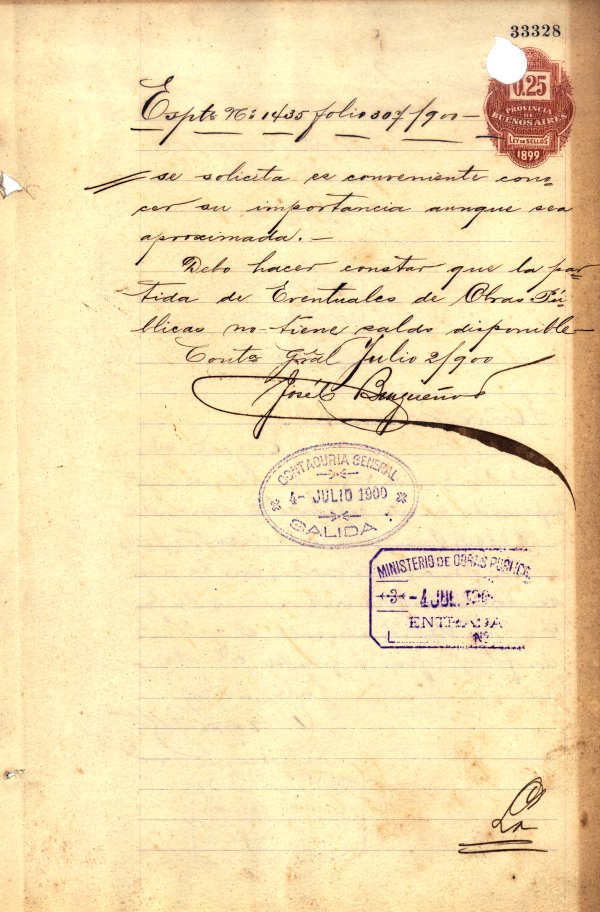 33328
0.25
PROVINCIA
DE
BUENOS AIRES
LEY DE SELLOS
1899
Expte Nº 1435 folio 307/900-
se solicita es conveniente cono-
cer su importancia aunque sea
aproximada.-
Debo hacer constar que la par-
tida de Eventuales de Obras Pú-
blicas no tiene saldo disponible-
Conta Gral Julio 2/900
José
CONTADURIA GENERAL
4- JULIO 1900
SALIDA
MINISTERIO DE OBRAS PUBLICA
3 -4 JUL. 190
ENTRADA
L Nº
La